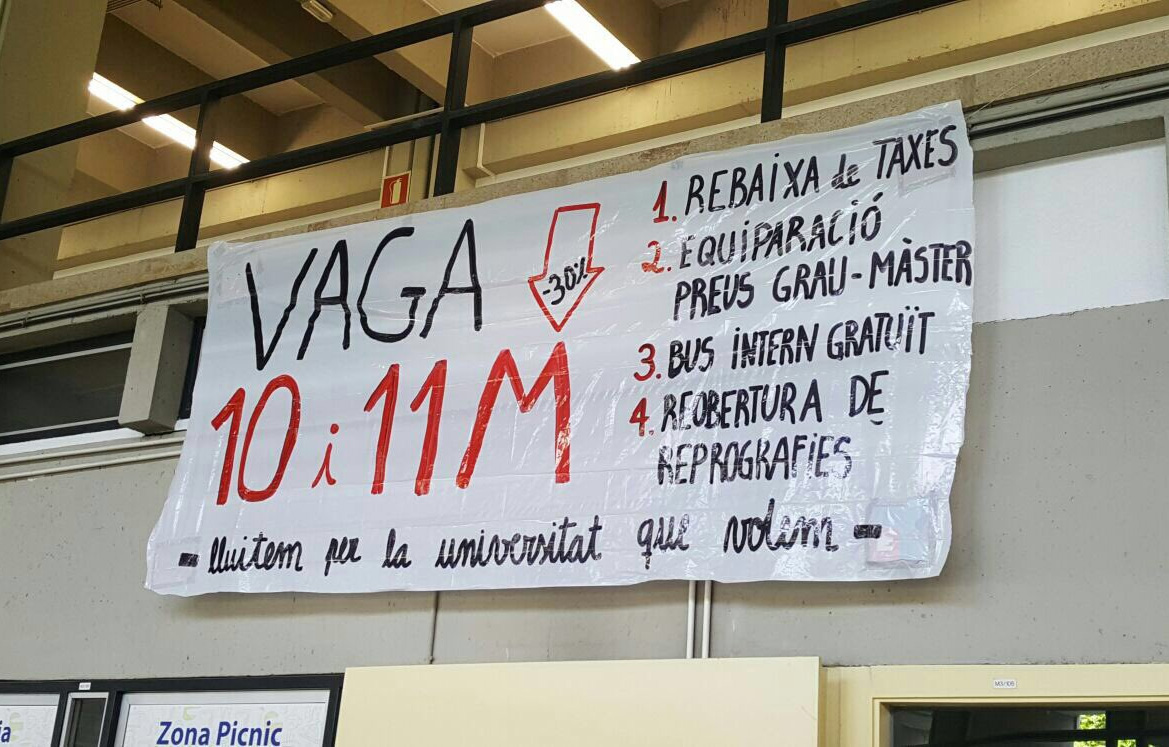 VAGA
-30%
10 i 11M
1. REBAIXA de TAXES
2. EQUIPARACIÓ
PREUS GRAU-MÀSTER
3. BUS INTERN GRATUÏT
4. REOBERTURA DE
REPROGRAFIES
- lluitem per la universitat que volem -
ia
Zona Picnic